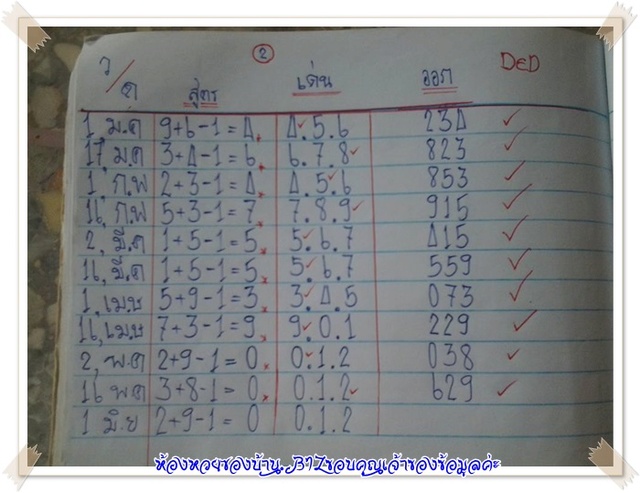 ว/ด สูตร ② เด่น ออก DED
1, ม.ค 9+6-1=4, 4.5.6 234 ✓
17, ม.ค 3+4-1=6, 6.7.8 823 ✓
1, ก.พ 2+3-1=4, 4.5.6 853 ✓
16, ก.พ 5+3-1=7, 7.8.9 915 ✓
2, มี.ค 1+5-1=5, 5.6.7 415 ✓
16, มี.ค 1+5-1=5, 5.6.7 559 ✓
1, เมษ 5+9-1=3, 3.4.5 073 ✓
16, เมษ 7+3-1=9, 9.0.1 229 ✓
2, พ.ค 2+9-1=0, 0.1.2 038 ✓
16 พ.ค 3+8-1=0, 0.1.2 629 ✓
1 มิ.ย 2+9-1=0 0.1.2
ห้องหวยของบ้าน B17ขอบคุณเจ้าของข้อมูลค่ะ